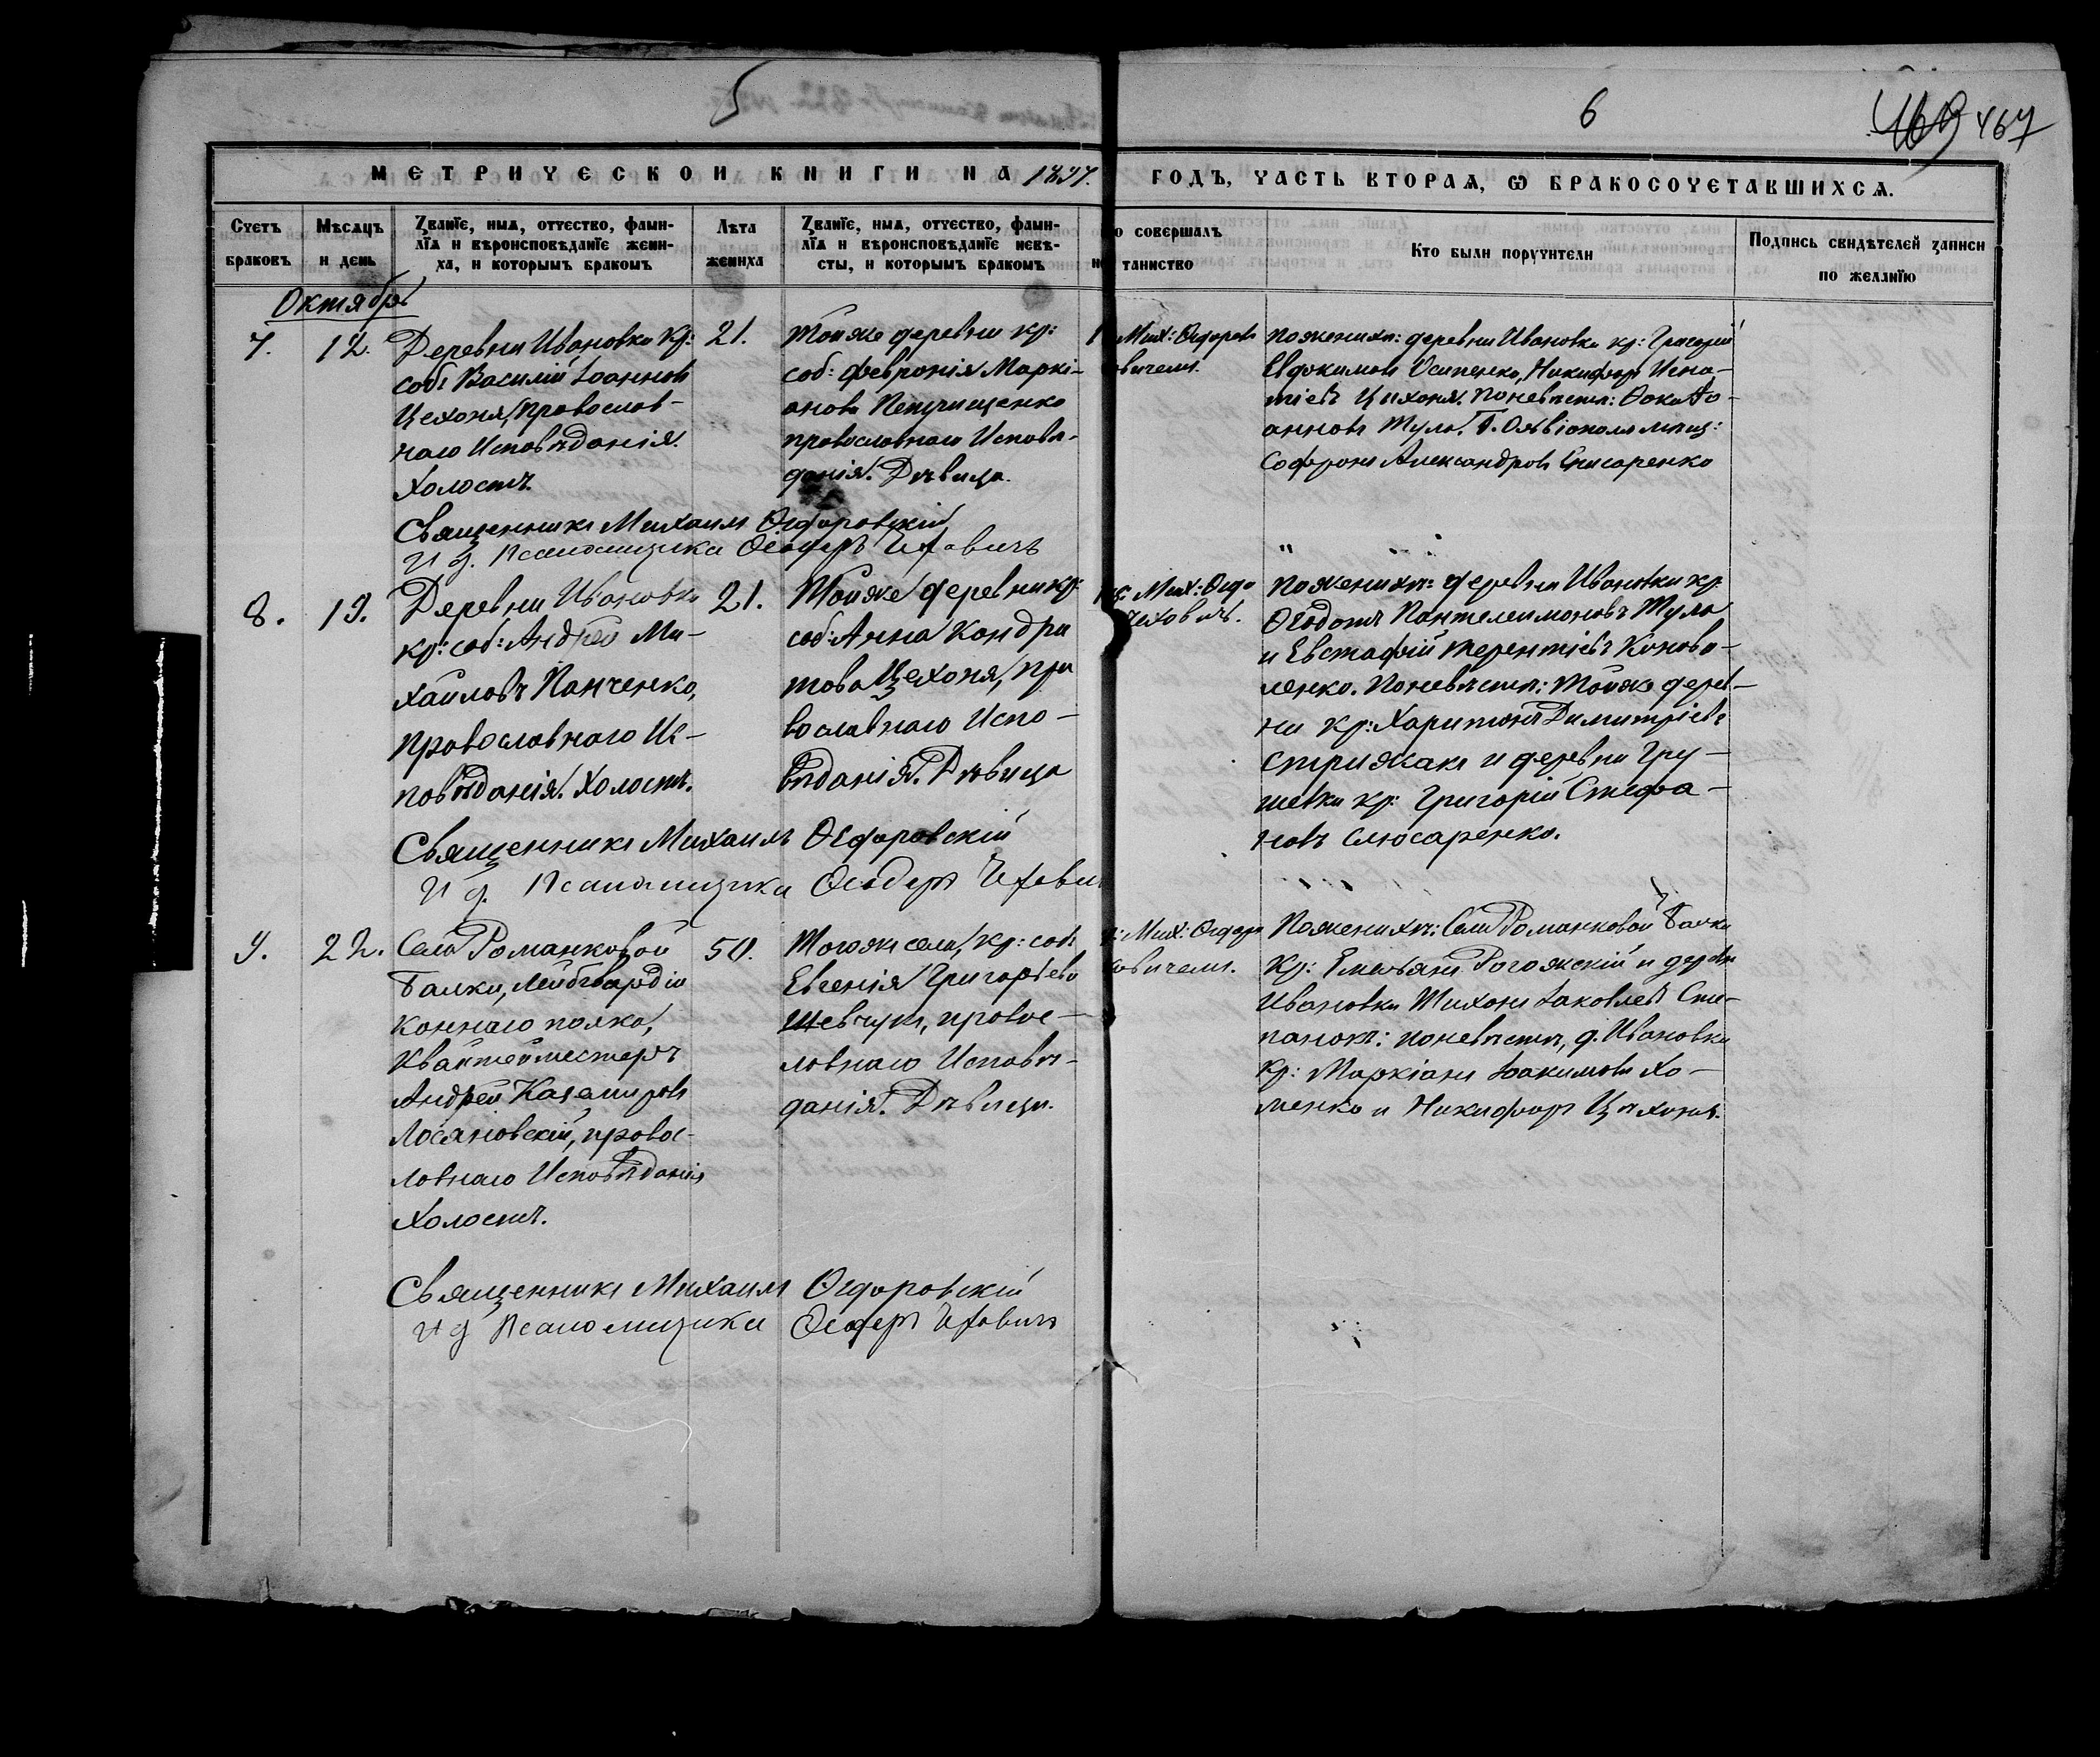 5
6
469 467
МЕТРИЧЕСКОЙ КНИГИ НА 1897.
ГОДЪ, ЧАСТЬ ВТОРАЯ, Ѡ БРАКОСОЧЕТАВШИХСЯ.
Счетъ браковъ
Мѣсяцъ и день
Званїе, имя, отчество, фами-
лїя и вѣроисповѣданїе жени-
ха, и которымъ бракомъ
Лѣта жениха
Званїе, имя, отчество, фами-
лїя и вѣроисповѣданїе невѣ-
сты, и которымъ бракомъ
о совершалъ
таинство
Кто были поручители
Подпись свидѣтелей записи
по желанїю
Октябрь
7.
12.
Деревни Ивановки Кр:
соб: Василій Іоанновъ
Цехоня, Православ-
наго Исповѣданія.
Холостъ.
21.
Тойже деревни кр:
соб: Февронія Маркі-
анова Петрищенко
православнаго Исповѣ-
данія. Дѣвица.
Мих: Ѳедоров
овичемъ.
Поженихѣ: деревни Ивановки кр: Григорій
Евдокимовъ Осипенко, Никифоръ Игна-
тіевъ Цихоня. Поневѣстѣ: Ѳока Іо-
анновъ Тула. Г. Ольвіополя мѣщ:
Софроній Александровъ Писаренко
Священникъ Михаилъ Ѳедоровскій
И д. Псаломщика Ѳеодоръ Чеховичъ
8.
19.
Деревни Ивановки
кр: соб: Андрей Ми-
хайловъ Панченко,
православнаго Ис-
повѣданія. Холостъ.
21.
Тойже деревни кр:
соб: Анна Кондра
това Цехоня, пра
вославнаго Испо-
вѣданія. Дѣвица
Мих: Ѳедо
чеховичъ.
Поженихѣ: деревни Ивановки кр:
Ѳеодотъ Пантелеимоновъ Тула
и Евстафій Терентіевъ Конова-
ленко. Поневѣстѣ: Тойже дерев-
ни кр: Харитонъ Димитріевъ
Стрижакъ и деревни Гру-
шевки кр: Григорій Стефа-
новъ Слюсаренко.
Священникъ Михаилъ Ѳедоровскій
И д. Псаломщика Ѳеодоръ Чехови
9.
22.
Села Романковой
Балки, Лейбгвардіи
Коннаго полка,
Квартермистеръ
Андрей Каземировъ
православ-
лавнаго Исповѣданія
Холостъ.
50.
Тогоже села, кр: соб:
Евгенія Григорьева
Шевчукъ, правос-
лавнаго Исповѣ-
данія. Дѣвица.
Мих: Ѳедоров
овичемъ.
Поженихѣ: Села Романковой Балки
Кр: Емельянъ Рогожскій и деревни
Ивановки Тихонъ Іаковлевъ Сте-
панокъ: поневѣстѣ, д. Ивановки
Кр: Маркіанъ Іоакимовъ Хо-
менко и Никифоръ Цѣхоня.
Священникъ Михаилъ Ѳедоровскій
И д Псаломщика Ѳеодоръ Чеховичъ